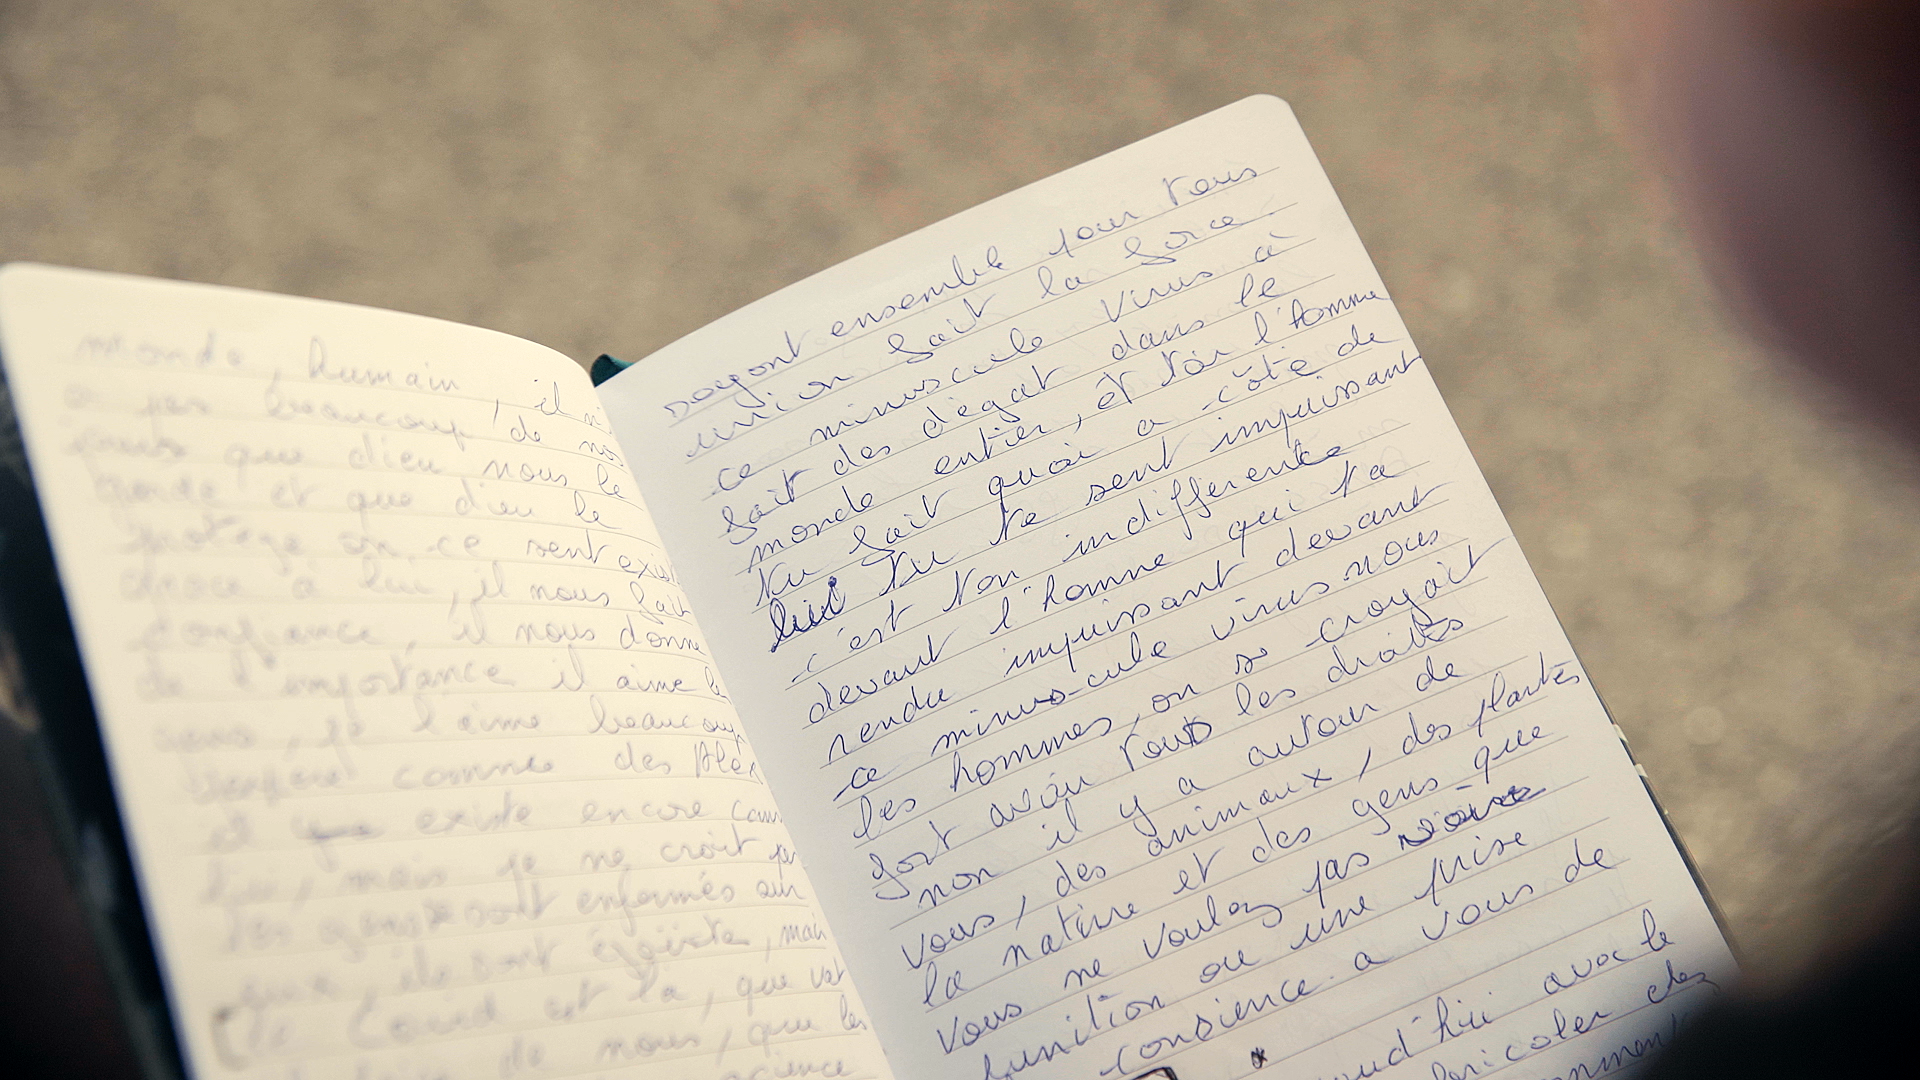 monde, humain, il n'
a pas beaucoup de nos
jours que dieu nous le
garde et que dieu le
protège on ce sent exist
grace à lui, il nous fait
confiance, il nous donne
de l'importance il aime le
gens, je l'aime beaucoup
comme des Alex
il que existe encore comm
lui, mais je ne croit pas
les gens sont enfermés sur
eux, ils sont égoïste, mai
le Covid est la, que vat
faire de nous, que les
science
soyont ensemble pour tous
union fait la force.
ce minuscule virus à
fait des dégat dans le
monde entier, et toi l'homme
tu fait quoi a côté de
lui tu te sent impuissant
c'est ton indifférence
devant l'homme qui t'a
rendu impuissant devant
ce minus-cule virus nous
les hommes, on se croyait
fort avoir tout les droites
non il y a autour de
vous, des animaux, des plantes
la nature et des gens que
vous ne voulez pas voire
punition ou une prise
consience a vous de
oujourd'hui avec le
bricoler des